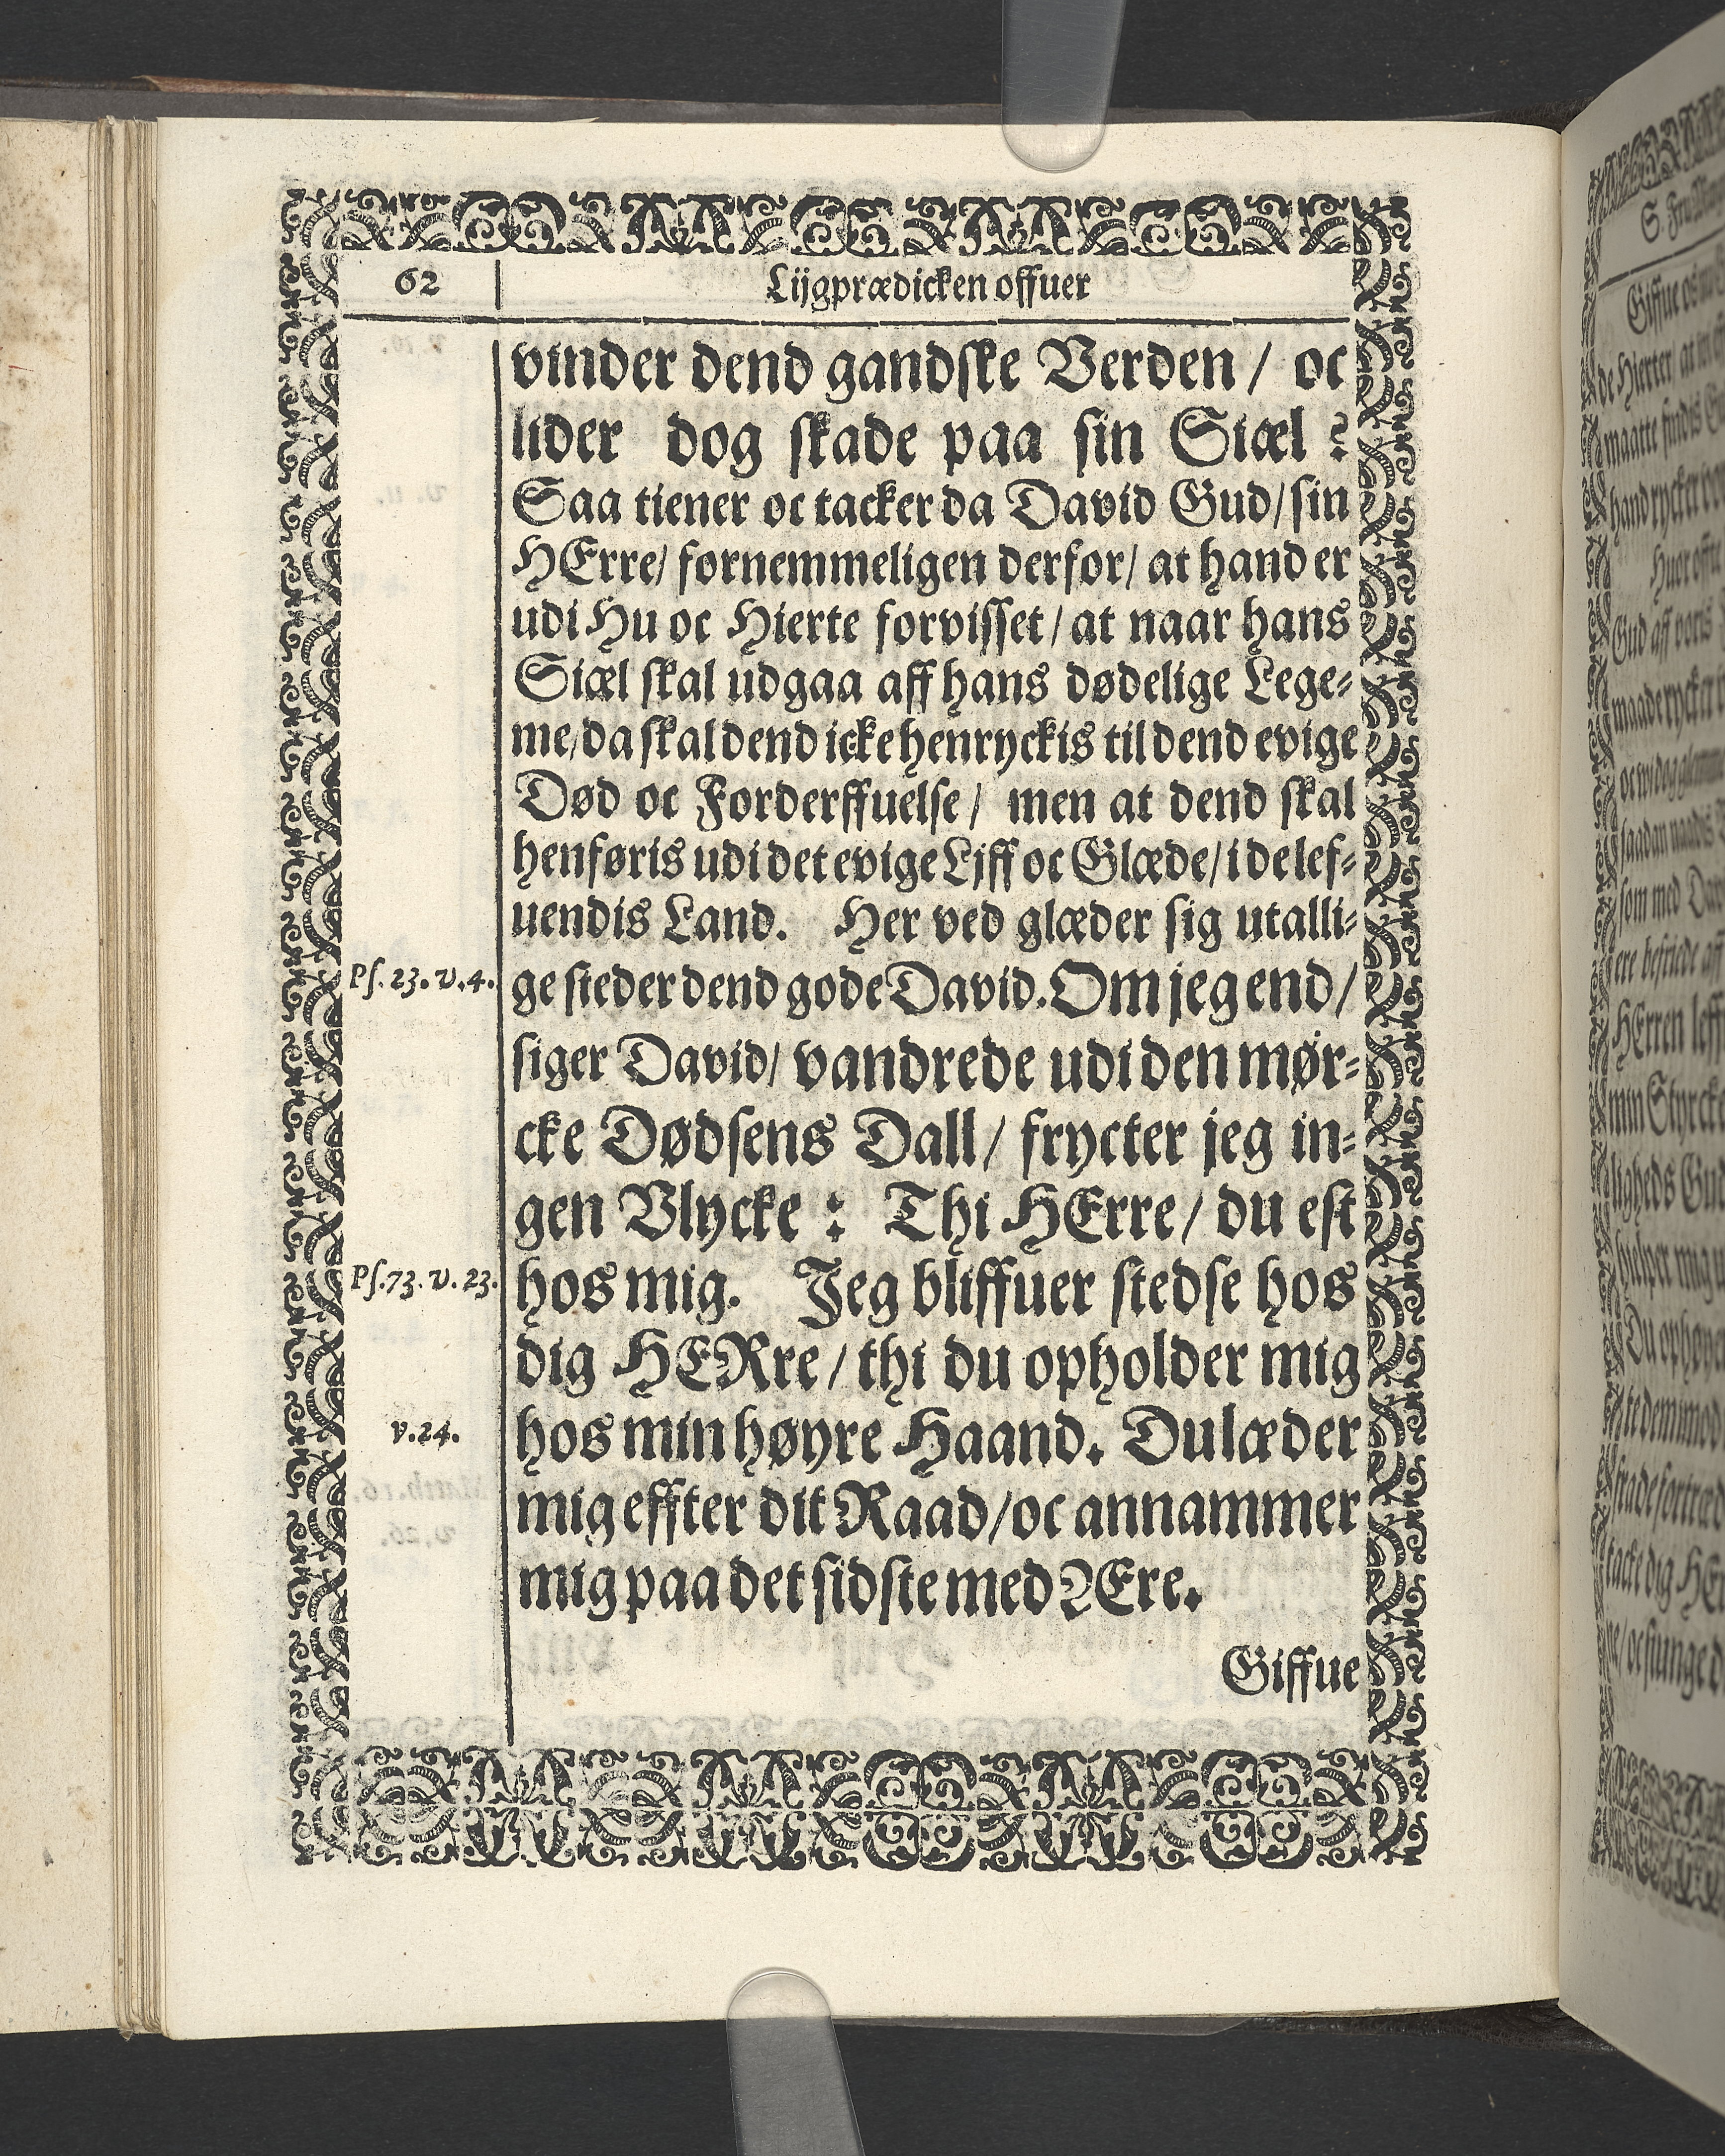 62
Lijgprædicken offuer
vinder dend gandske Verden / oc
lider dog skade paa sin Siæl ?
Saa tiener oc tacker da David Gud / sin
HErre / fornemmeligen derfor / at hand er
udi Hu oc Hierte forvisset / at naar hans
Siæl skal udgaa aff hans dødelige Lege-
me / da skal dend icke henryckis til dend evige
Død oc Forderffuelse / men at dend skal
henføris udi det evige Ljff oc Glæde / i de lef-
uendis Land. Her ved glæder sig utalli-
Ps. 23. v. 4.
ge steder dend gode David. Om jeg end /
siger David / vandrede udi den mør-
cke Dødsens Dall / frycter jeg in-
gen Vlycke : Thi HErre / du est
Ps. 73. v. 23.
hos mig. Jeg bliffuer stedse hos
dig HERre / thi du opholder mig
v. 24.
hos min høyre Haand. Du læder
mig effter dit Raad / oc annammer
mig paa det sidste med ÆEre.
Giffue